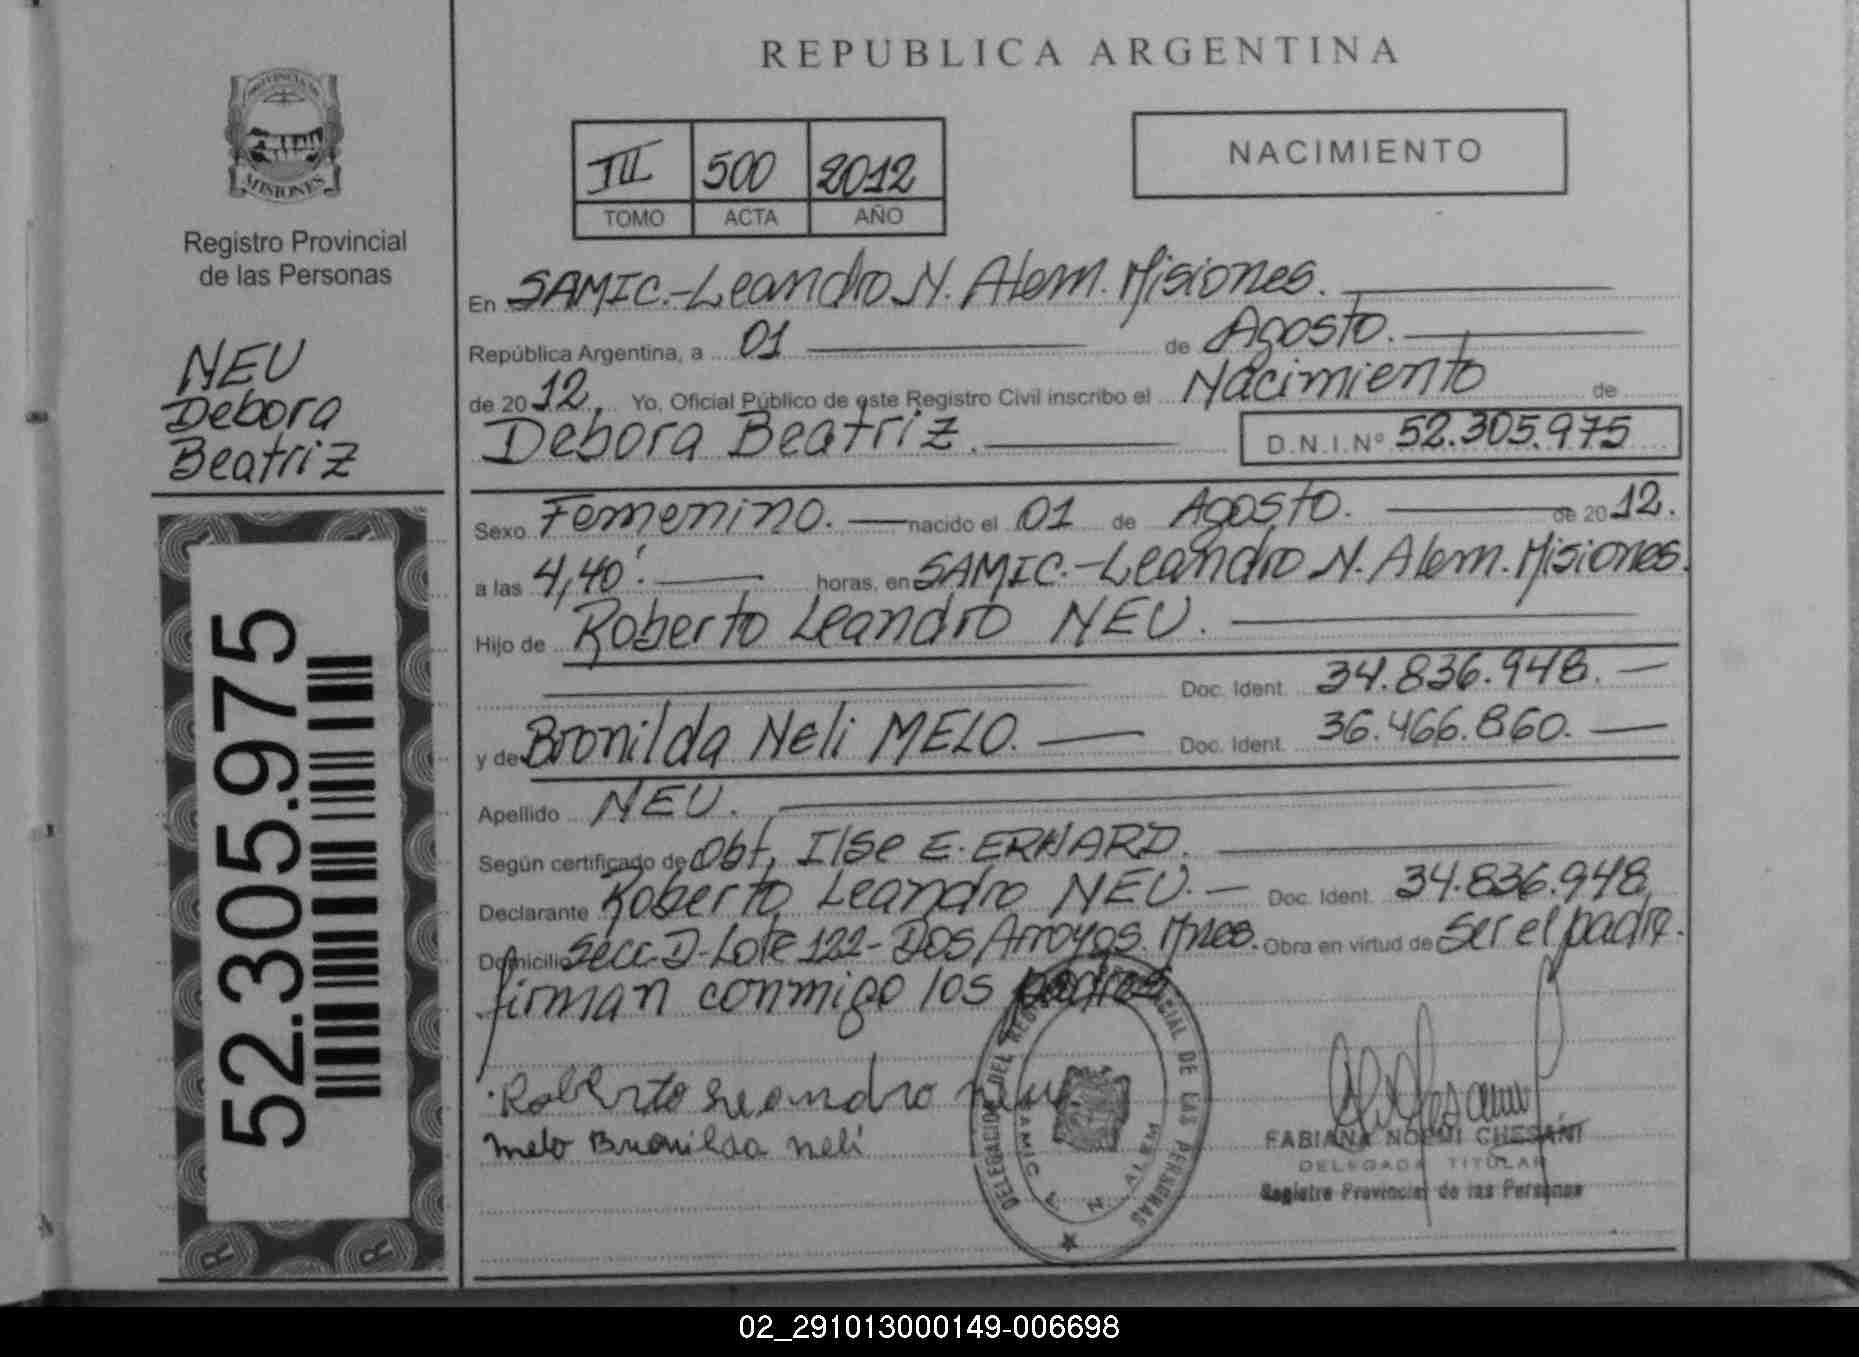 REPUBLICA ARGENTINA
PROVINCIA DE
MISIONES
Registro Provincial
de las Personas
NEU
Debora
Beatriz
52.305.975
III 500 2012
TOMO ACTA AÑO
NACIMIENTO
En SAMIC.-Leandro N. Alem. Misiones.
República Argentina, a 01 de Agosto.
de 2012, Yo, Oficial Público de este Registro Civil inscribo el Nacimiento de
Debora Beatriz. D.N.I.Nº 52.305.975
Sexo Femenino. nacido el 01 de Agosto. de 2012.
a las 4,40'. horas, en SAMIC.-Leandro N. Alem. Misiones.
Hijo de Roberto Leandro NEU.
Doc. Ident. 34.836.948.
y de Bronilda Neli MELO. Doc. Ident. 36.466.860.
Apellido NEU.
Según certificado de Obt, Ilse E. ERHARD.
Declarante Roberto Leandro NEU. Doc. Ident. 34.836.948
Domicilio Secc. D-Lote 122-Dos Arroyos. Mnes. Obra en virtud de Ser el padre.
firman conmigo los padres
Roberto Leandro Neu
Melo Bronilda Neli
DELEGACION DEL REGISTRO PROVINCIAL DE LAS PERSONAS
SAMIC L. N. ALEM
FABIANA NOEMI CHESANI
DELEGADA TITULAR
Registro Provincial de las Personas
R R
02_291013000149-006698